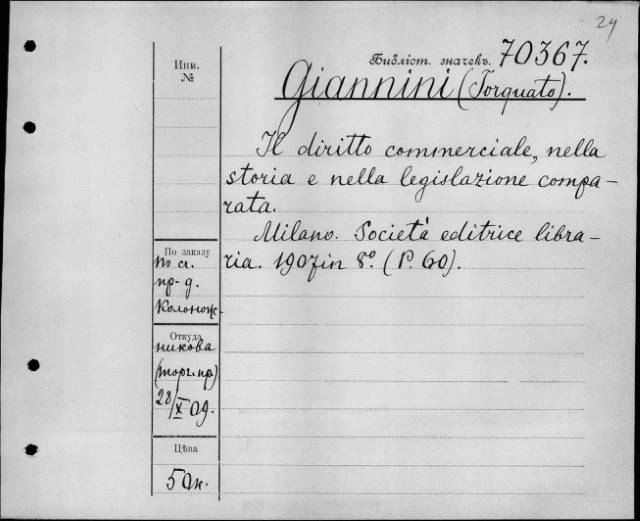 24
Библіот. значекъ. 70367.
Инв.
№
Giannini (Torquato).
Il diritto commerciale, nella
storia e nella legislazione compa-
rata.
Milano. Società editrice libra-
ria. 1907 in 8º. (P. 60).
По заказу
пр-д.
Колонож-
Откуда
никова
(торг. пр)
28/X 09.
Цѣна
50 к.